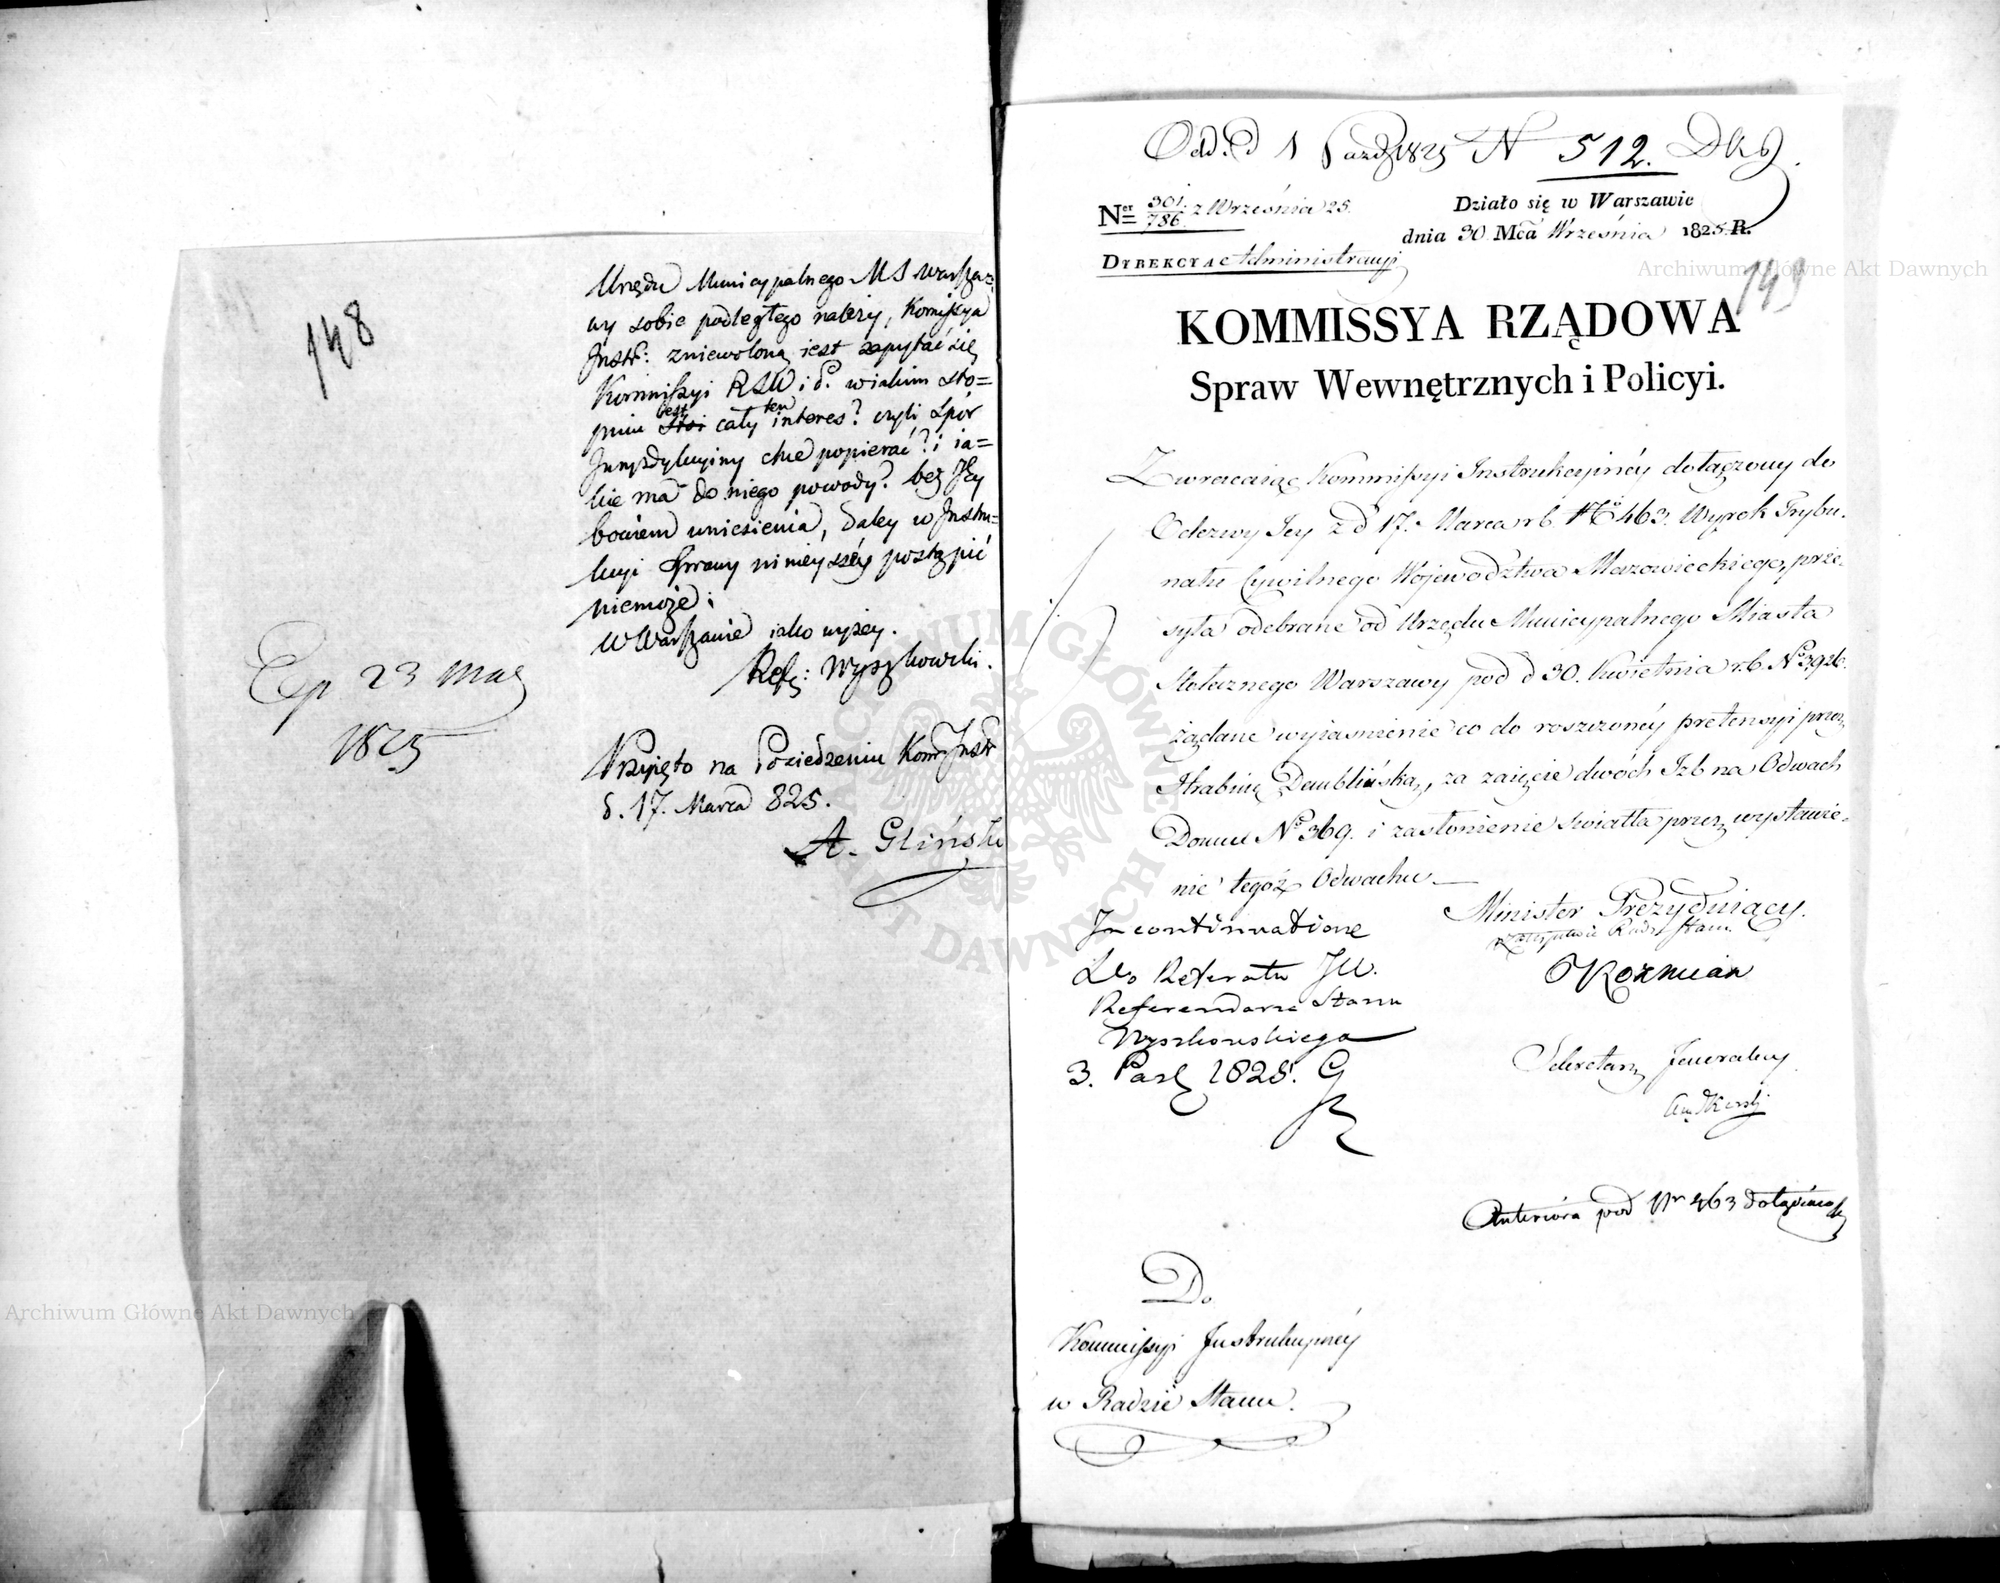 148
Urzędu Municypalnego M S Warszа=
wy sobie podległego należy, Komissya
Instr: zniewoloną iest zapytać się
Kommissyi RSW i P. w iakim sto=
pniu iest cały ten interes? czyli Spór
Juryzdykcyiny chce popierać? i ia=
kie ma do niego powody? bez Jey
bowiem uniesienia, daley w Instru=
kcyi Sprawy ninieyszéy postąpić
niemoże;
W Warszawie iako wyżey.
Refr: Wyszkowski.
Exp 23 Mag
1825
Przyięto na Posiedzeniu Kom: Instr
d. 17. Marca 825.
A. Gliński
Odd. d 1 Paźdz 1825 N 512. DKJ.
Ner 301/786 z Września 25.
Działo się w Warszawie
dnia 30 Mca Września 1825 R.
DYREKCYA Administracyi
149
KOMMISSYA RZĄDOWA
Spraw Wewnętrznych i Policyi.
Zwracaiąc Kommissyi Instrukcyinéy dołączony do
Odezwy Jey z d 17. Marca r b. No 463. Wyrok Trybu-
nału Cywilnego Województwa Mazowieckiego, prze-
syła odebrane od Urzędu Municypalnego Miasta
Stołecznego Warszawy pod d 30. Kwietnia r. b. No 3926.
żądane wyiaśnienie co do roszczonéy pretensyi przez
Hrabinę Dembińską, za zaięcie dwóch Izb na Odwach
Domu No 369. i zasłonienie światła przez wystawie-
nie tegoż Odwachu.
Minister Prezyduiący.
w zastępstwie Radca Stanu
Koźmian
In continuatione
Do Referatu JW.
Referendarza Stanu
Wyszkowskiego
3. Paź 1825. G
Sekretarz Jeneralny
Anteriora pod Nr 463 dołączaią się
Do
Kommissyi Instrukcyinéy
w Radzie Stanu.
Archiwum Główne Akt Dawnych
Archiwum Główne Akt Dawnych
ARCHIWUM GŁÓWNE AKT DAWNYCH